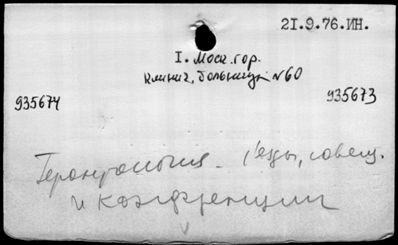 21.9.76.ИН.
I. Моск. гор.
клинич. больница №60
935674 935673
Геронтология - съезды, совещ.
и конференции